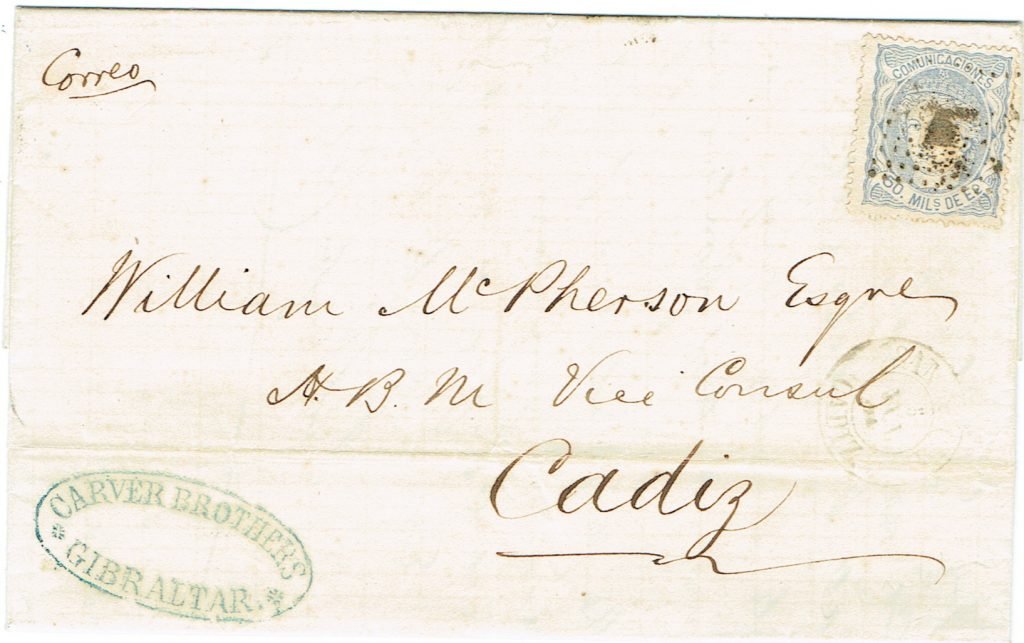 Correo
COMUNICACIONES
50. MILS DE E
William McPherson Esqre
H. B. M Vice Consul
Cadiz
CARVER BROTHERS
GIBRALTAR.